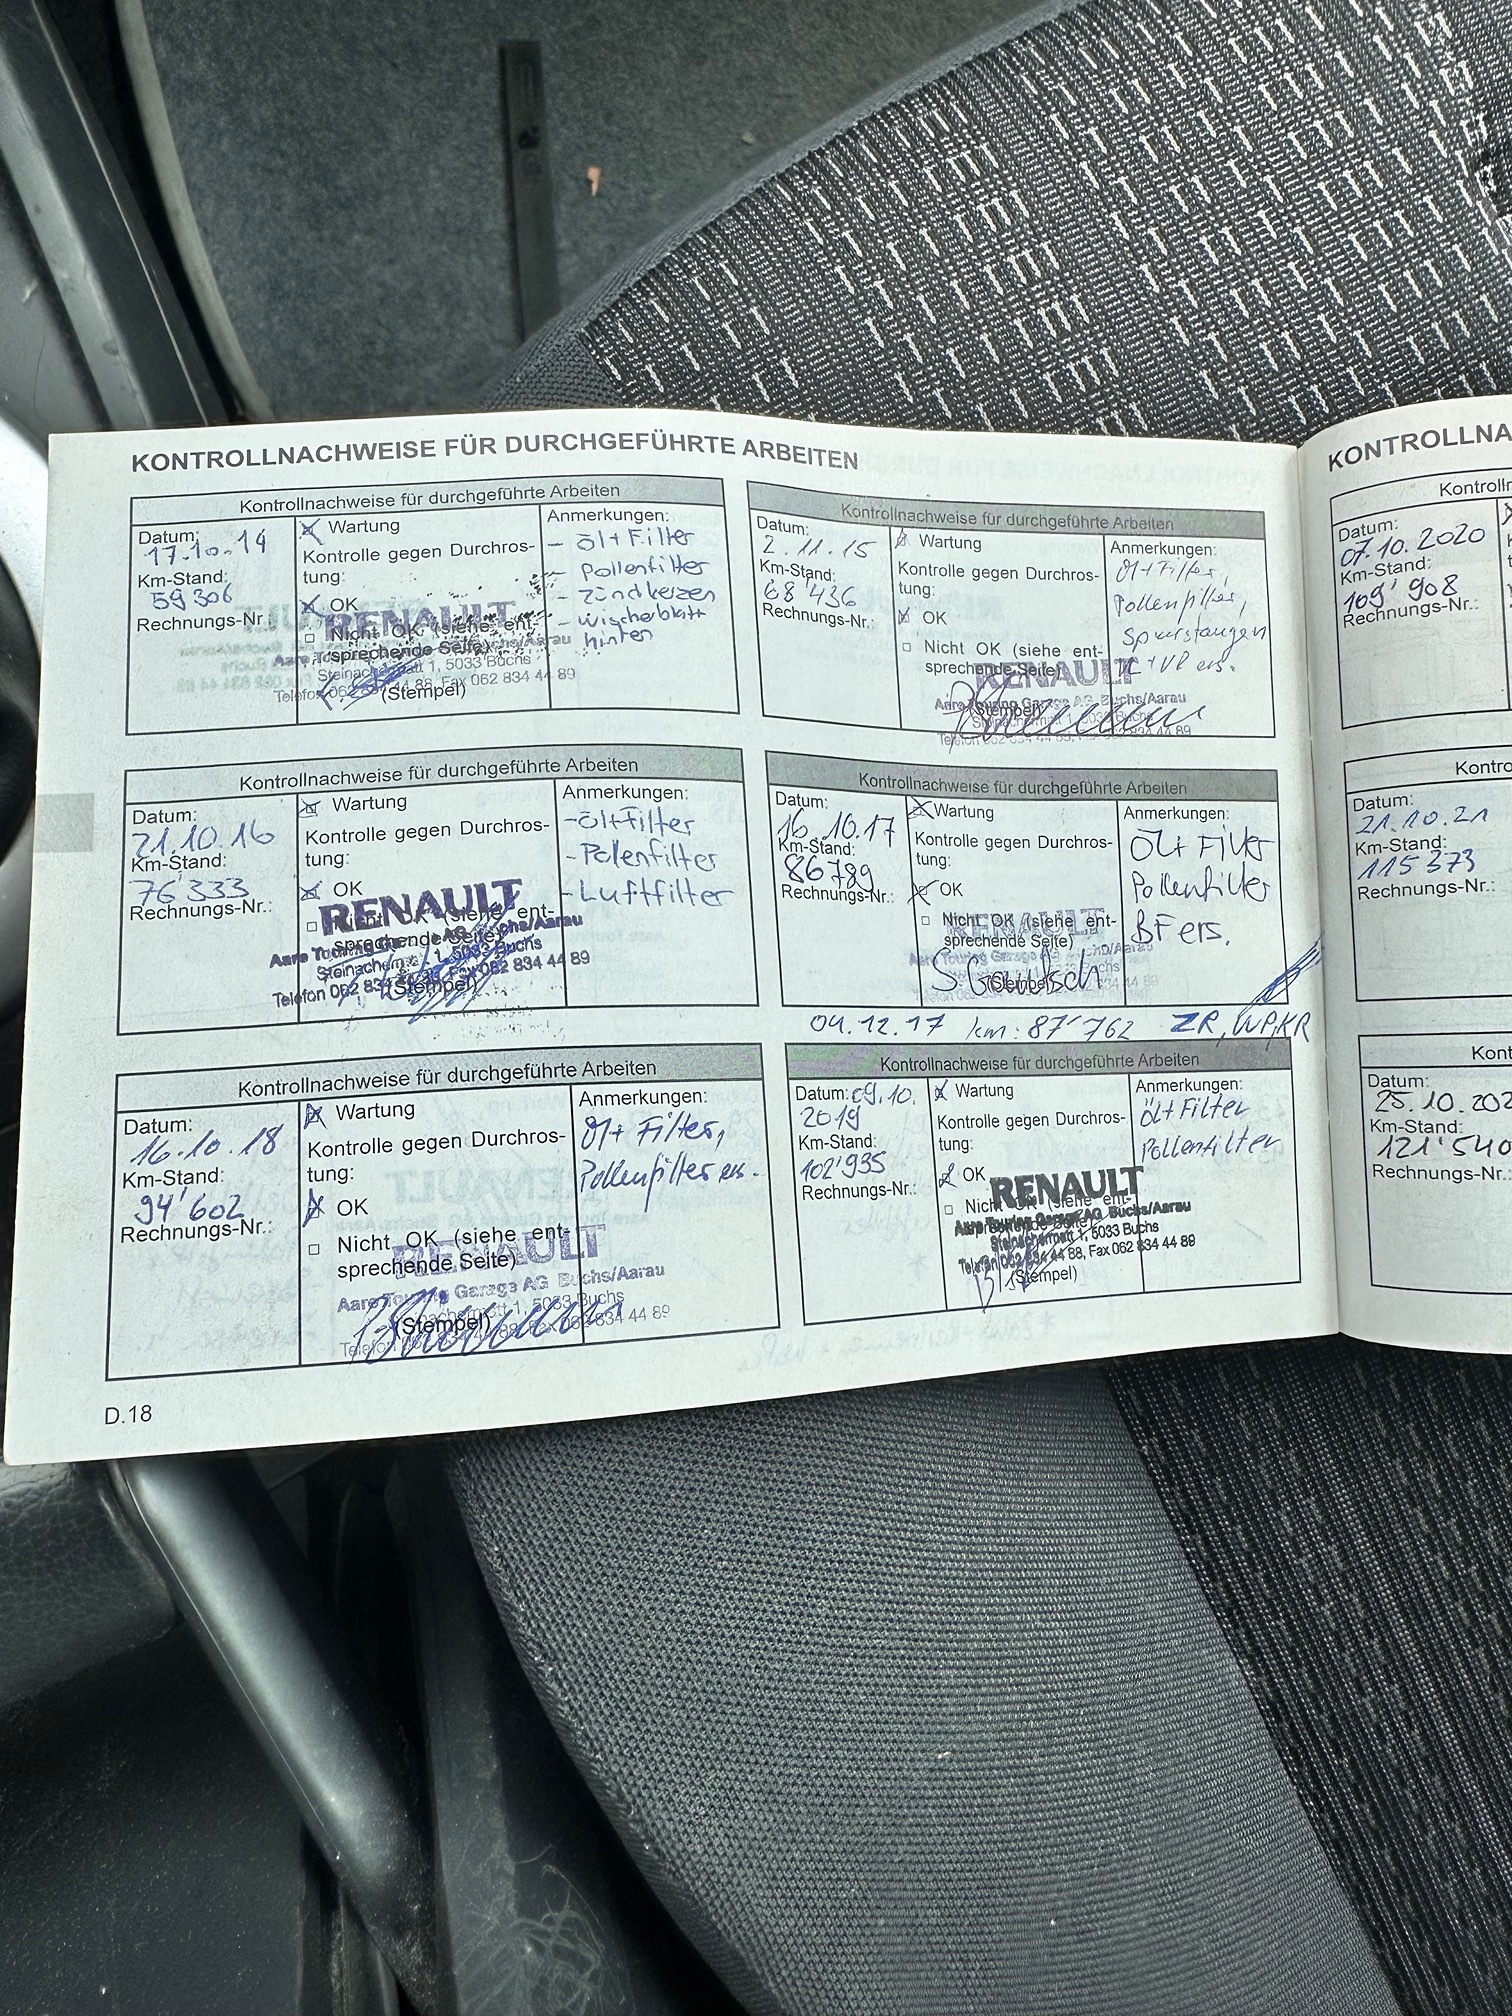 KONTROLLNACHWEISE FÜR DURCHGEFÜHRTE ARBEITEN
Kontrollnachweise für durchgeführte Arbeiten
Datum:
17.10.14
Km-Stand:
59306
Rechnungs-Nr
Wartung
Kontrolle gegen Durchros-
tung:
OK
Nicht OK (siehe ent-
sprechende Seite)
(Stempel)
RENAULT
Steinachermatt 1, 5033 Buchs
Fax 062 834 44 89
Anmerkungen:
- Öl+Filter
- Pollenfilter
- Zündkerzen
- Wischerblatt
hinten
Kontrollnachweise für durchgeführte Arbeiten
Datum:
2.11.15
Km-Stand:
68'436
Rechnungs-Nr.:
Wartung
Kontrolle gegen Durchros-
tung:
OK
Nicht OK (siehe ent-
sprechende Seite)
(Stempel)
RENAULT
Aare Touring Garage AG Buchs/Aarau
Steinachermatt 1, 5033 Buchs
Anmerkungen:
Öl+Filter,
Pollenfilter,
Spurstangen
ers.
Kontrollnachweise für durchgeführte Arbeiten
Datum:
21.10.16
Km-Stand:
76'333
Rechnungs-Nr.:
Wartung
Kontrolle gegen Durchros-
tung:
OK
Nicht OK (siehe ent-
sprechende Seite)
(Stempel)
RENAULT
Buchs/Aarau
5033 Buchs
Fax 062 834 44 89
Anmerkungen:
-Öl+Filter
-Polenfilter
-Luftfilter
Kontrollnachweise für durchgeführte Arbeiten
Datum:
16.10.17
Km-Stand:
86789
Rechnungs-Nr.:
Wartung
Kontrolle gegen Durchros-
tung:
OK
Nicht OK (siehe ent-
sprechende Seite)
(Stempel)
RENAULT
Anmerkungen:
Öl+ Filter
Pollenfilter
BF ers.
04.12.17 km: 87'762 ZR, WP, KR
Kontrollnachweise für durchgeführte Arbeiten
Datum:
16.10.18
Km-Stand:
94'602
Rechnungs-Nr.:
Wartung
Kontrolle gegen Durchros-
tung:
OK
Nicht OK (siehe ent-
sprechende Seite)
(Stempel)
RENAULT
Aare Touring Garage AG Buchs/Aarau
5033 Buchs
Anmerkungen:
Öl+ Filter,
Pollenfilter ers.
Kontrollnachweise für durchgeführte Arbeiten
Datum: 09.10.
2019
Km-Stand:
102'935
Rechnungs-Nr.:
Wartung
Kontrolle gegen Durchros-
tung:
OK
Nicht OK (siehe ent-
(Stempel)
RENAULT
Aare Touring Garage AG Buchs/Aarau
Steinachermatt 1, 5033 Buchs
Telefon 062 834 44 88, Fax 062 834 44 89
Anmerkungen:
Öl+Filter
Pollenfilter
D.18
KONTROLLNA
Kontrolln
Datum:
07.10.2020
Km-Stand:
109'908
Rechnungs-Nr.:
Kontro
Datum:
21.10.21
Km-Stand:
115'373
Rechnungs-Nr.:
Kont
Datum:
25.10.202
Km-Stand:
121'540
Rechnungs-Nr.: